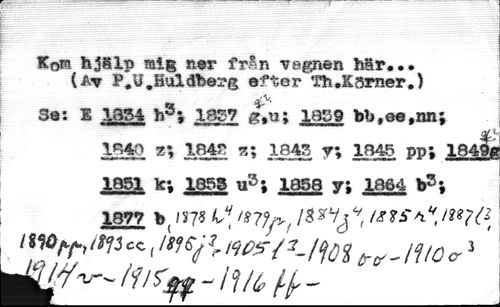 Kom hjälp mig ner från vagnen här...
(Av P.U.Huldberg efter Th.Körner.)
Se: E 1834 h³; 1837 g,u; 1839 bb,ee,nn;
1840 z; 1842 z; 1843 y; 1845 pp; 1849g
1851 k; 1853 u³; 1858 y; 1864 b³;
1877 b, 1878 h⁴, 1879p, 1884z⁴, 1885 r⁴, 1887 l³,
1890pp, 1893cc, 1895 j³, -1905 l³-1908 oo-1910 o³
1914 v-1915 -1916 ff-